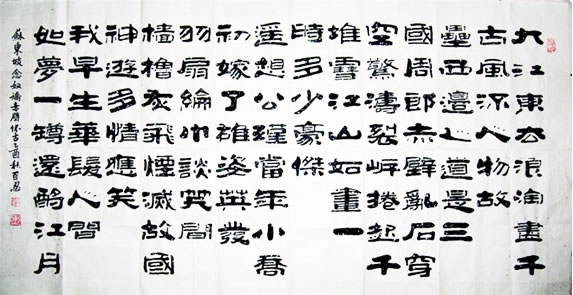 大江東去浪淘盡千
古風流人物故
壘西邊人道是三
國周郎赤壁亂石穿
空驚濤裂岸捲起千
堆雪江山如畫一
時多少豪傑
遙想公瑾當年小喬
初嫁了雄姿英發
羽扇綸巾談笑間
檣櫓灰飛煙滅故國
神遊多情應笑
我早生華髮人間
如夢一樽還酹江月
蘇東坡念奴嬌赤壁懷古乙酉秋